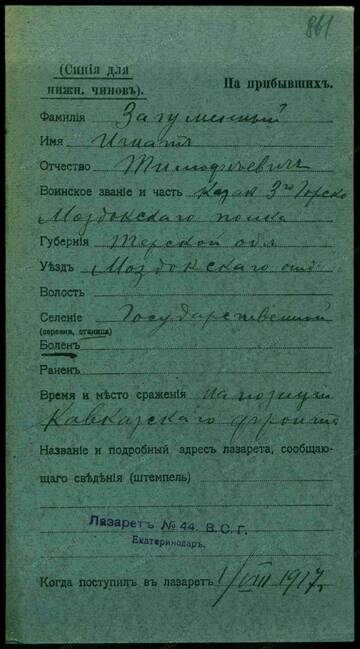 861
(Синія для
нижн. чиновъ).
На прибывшихъ.
Фамилія Загуменный
Имя Игнатъ
Отчество Тимофѣевичъ
Воинское званіе и часть Казак 3го Горско
Моздокскаго полка
Губернія Терской обл
Уѣздъ Моздокскаго отд.
Волость
Селеніе Государственной
(деревня, станица)
Боленъ
Раненъ
Время и мѣсто сраженія на позиціи
Кавказскаго фронта
Названіе и подробный адресъ лазарета, сообщаю-
щаго свѣдѣнія (штемпель)
Лазаретъ № 44. В.С.Г.
Екатеринодаръ.
Когда поступилъ въ лазаретъ 1/VIII 1917г.